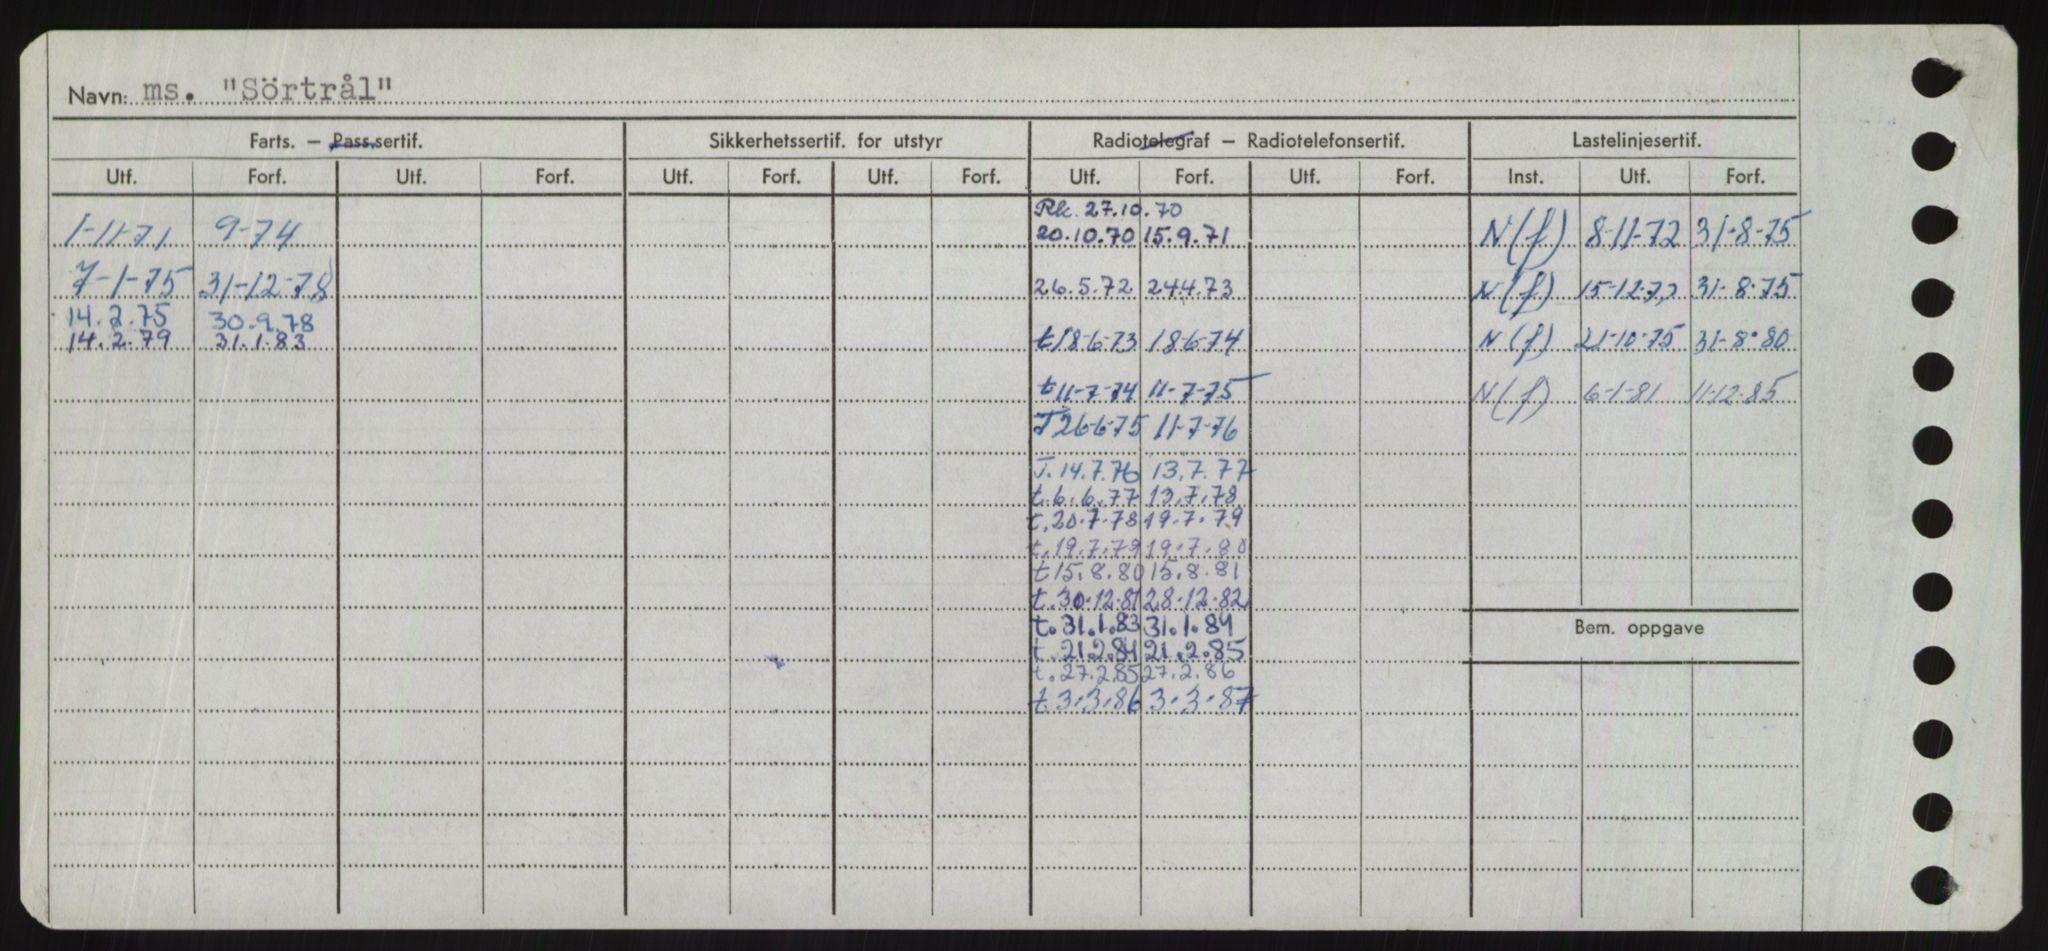 Navn: ms. "Sörtrål"
Farts. — Pass.sertif. Sikkerhetssertif. for utstyr Radiotelegraf — Radiotelefonsertif. Lastelinjesertif.
Utf. Forf. Utf. Forf. Utf. Forf. Utf. Forf. Utf. Forf. Utf. Forf. Inst. Utf. Forf.
Rk. 27.10.70
1-11-71 9-74 20.10.70 15.9.71 N(f) 8-11-72 31-8-75
7-1-75 31-12-78 26.5.72 24.4.73 N(f) 15-12-72 31-8-75
14.2.75 30.9.78
14.2.79 31.1.83 t18-6-73 18-6-74 N(f) 21-10-75 31-8-80
t11-7-74 11-7-75 N(f) 6-1-81 11-12-85
T26-6-75 11-7-76
T.14.7.76 13.7.77
t.6.6.77 13.7.78
t.20.7.78 19.7.79
t.19.7.79 19.7.80
t15.8.80 15.8.81
t.30.12.81 28.12.82
t.31.1.83 31.1.84 Bem. oppgave
t.21.2.84 21.2.85
t.27.2.85 27.2.86
t3.3.86 3.3.87